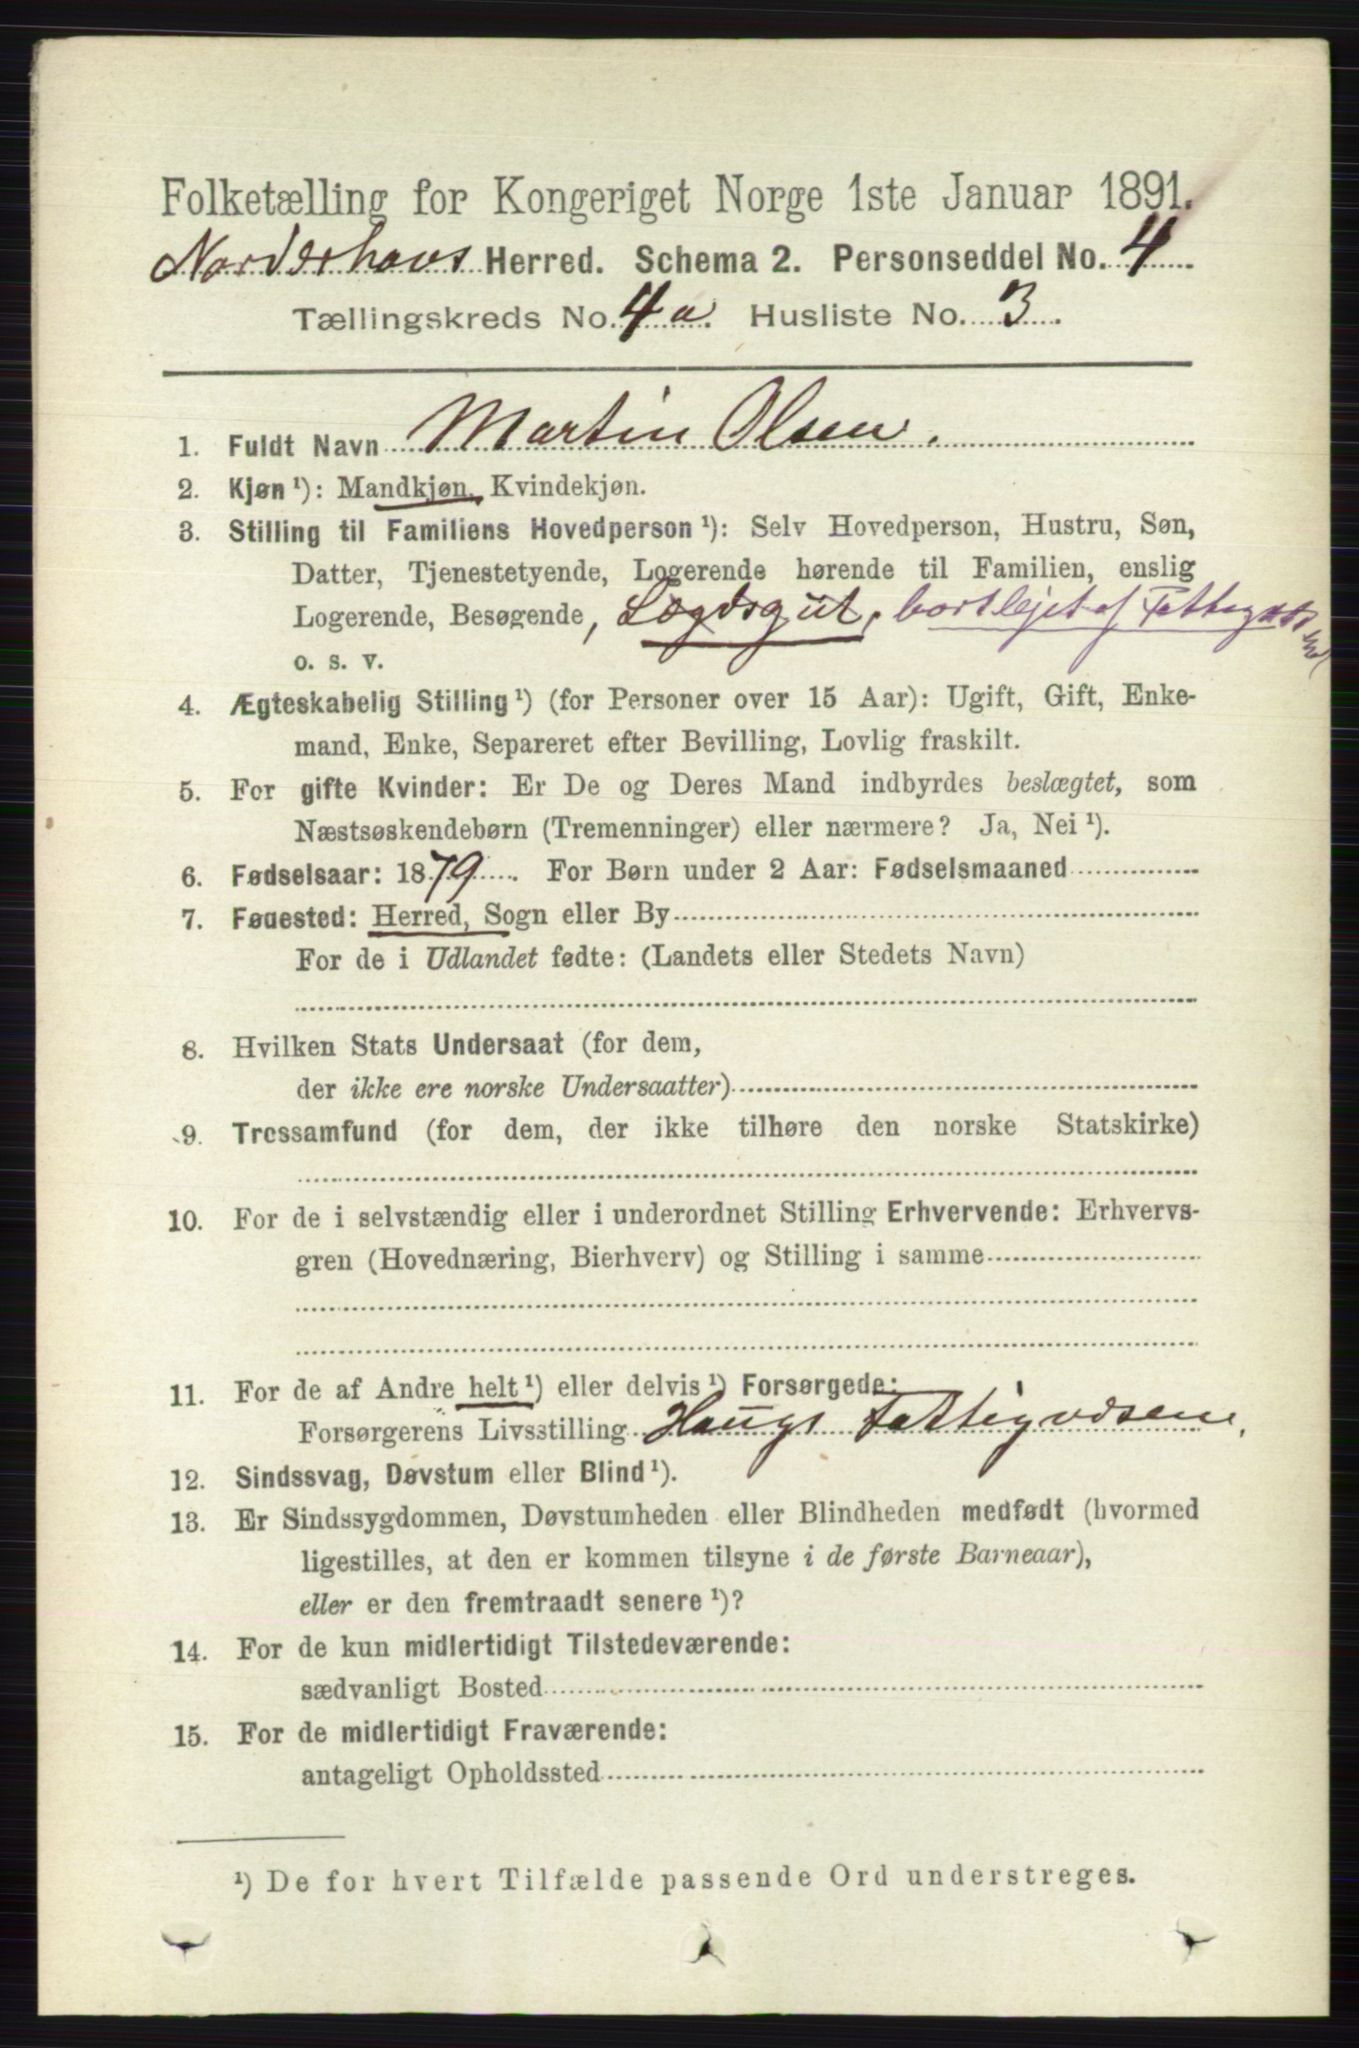 Folketælling for Kongeriget Norge 1ste Januar 1891.
Norderhovs Herred. Schema 2. Personseddel No. 4
Tællingskreds No. 4a. Husliste No. 3.
1. Fuldt Navn Martin Olsen.
2. Kjøn ¹): Mandkjøn, Kvindekjøn.
3. Stilling til Familiens Hovedperson ¹): Selv Hovedperson, Hustru, Søn,
Datter, Tjenestetyende, Logerende hørende til Familien, enslig
Logerende, Besøgende, Lægdsgut, bortlejet af Fattigvæsen
o. s. v.
4. Ægteskabelig Stilling ¹) (for Personer over 15 Aar): Ugift, Gift, Enke-
mand, Enke, Separeret efter Bevilling, Lovlig fraskilt.
5. For gifte Kvinder: Er De og Deres Mand indbyrdes beslægtet, som
Næstsøskendebørn (Tremenninger) eller nærmere? Ja, Nei ¹).
6. Fødselsaar: 1879. For Børn under 2 Aar: Fødselsmaaned
7. Fødested: Herred, Sogn eller By
For de i Udlandet fødte: (Landets eller Stedets Navn)
8. Hvilken Stats Undersaat (for dem,
der ikke ere norske Undersaatter)
9. Trossamfund (for dem, der ikke tilhøre den norske Statskirke)
10. For de i selvstændig eller i underordnet Stilling Erhvervende: Erhvervs-
gren (Hovednæring, Bierhverv) og Stilling i samme
11. For de af Andre helt ¹) eller delvis ¹) Forsørgede:
Forsørgerens Livsstilling Haugs Fattigvæsen.
12. Sindssvag, Døvstum eller Blind ¹).
13. Er Sindssygdommen, Døvstumheden eller Blindheden medfødt (hvormed
ligestilles, at den er kommen tilsyne i de første Barneaar),
eller er den fremtraadt senere ¹)?
14. For de kun midlertidigt Tilstedeværende:
sædvanligt Bosted
15. For de midlertidigt Fraværende:
antageligt Opholdssted
¹) De for hvert Tilfælde passende Ord understreges.